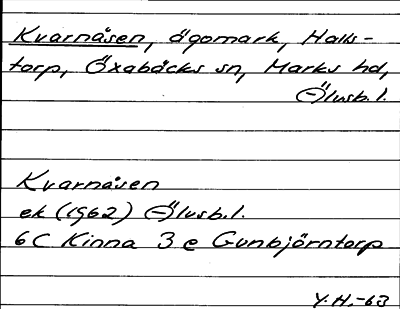 Kvarnåsen, ägomark, Halls-
torp, Öxabäcks sn, Marks hd,
Älvsb.l.
Kvarnåsen
ek (1962) Älvsb.l.
6C Kinna 3 e Gunbjörntorp
Y.H.-63